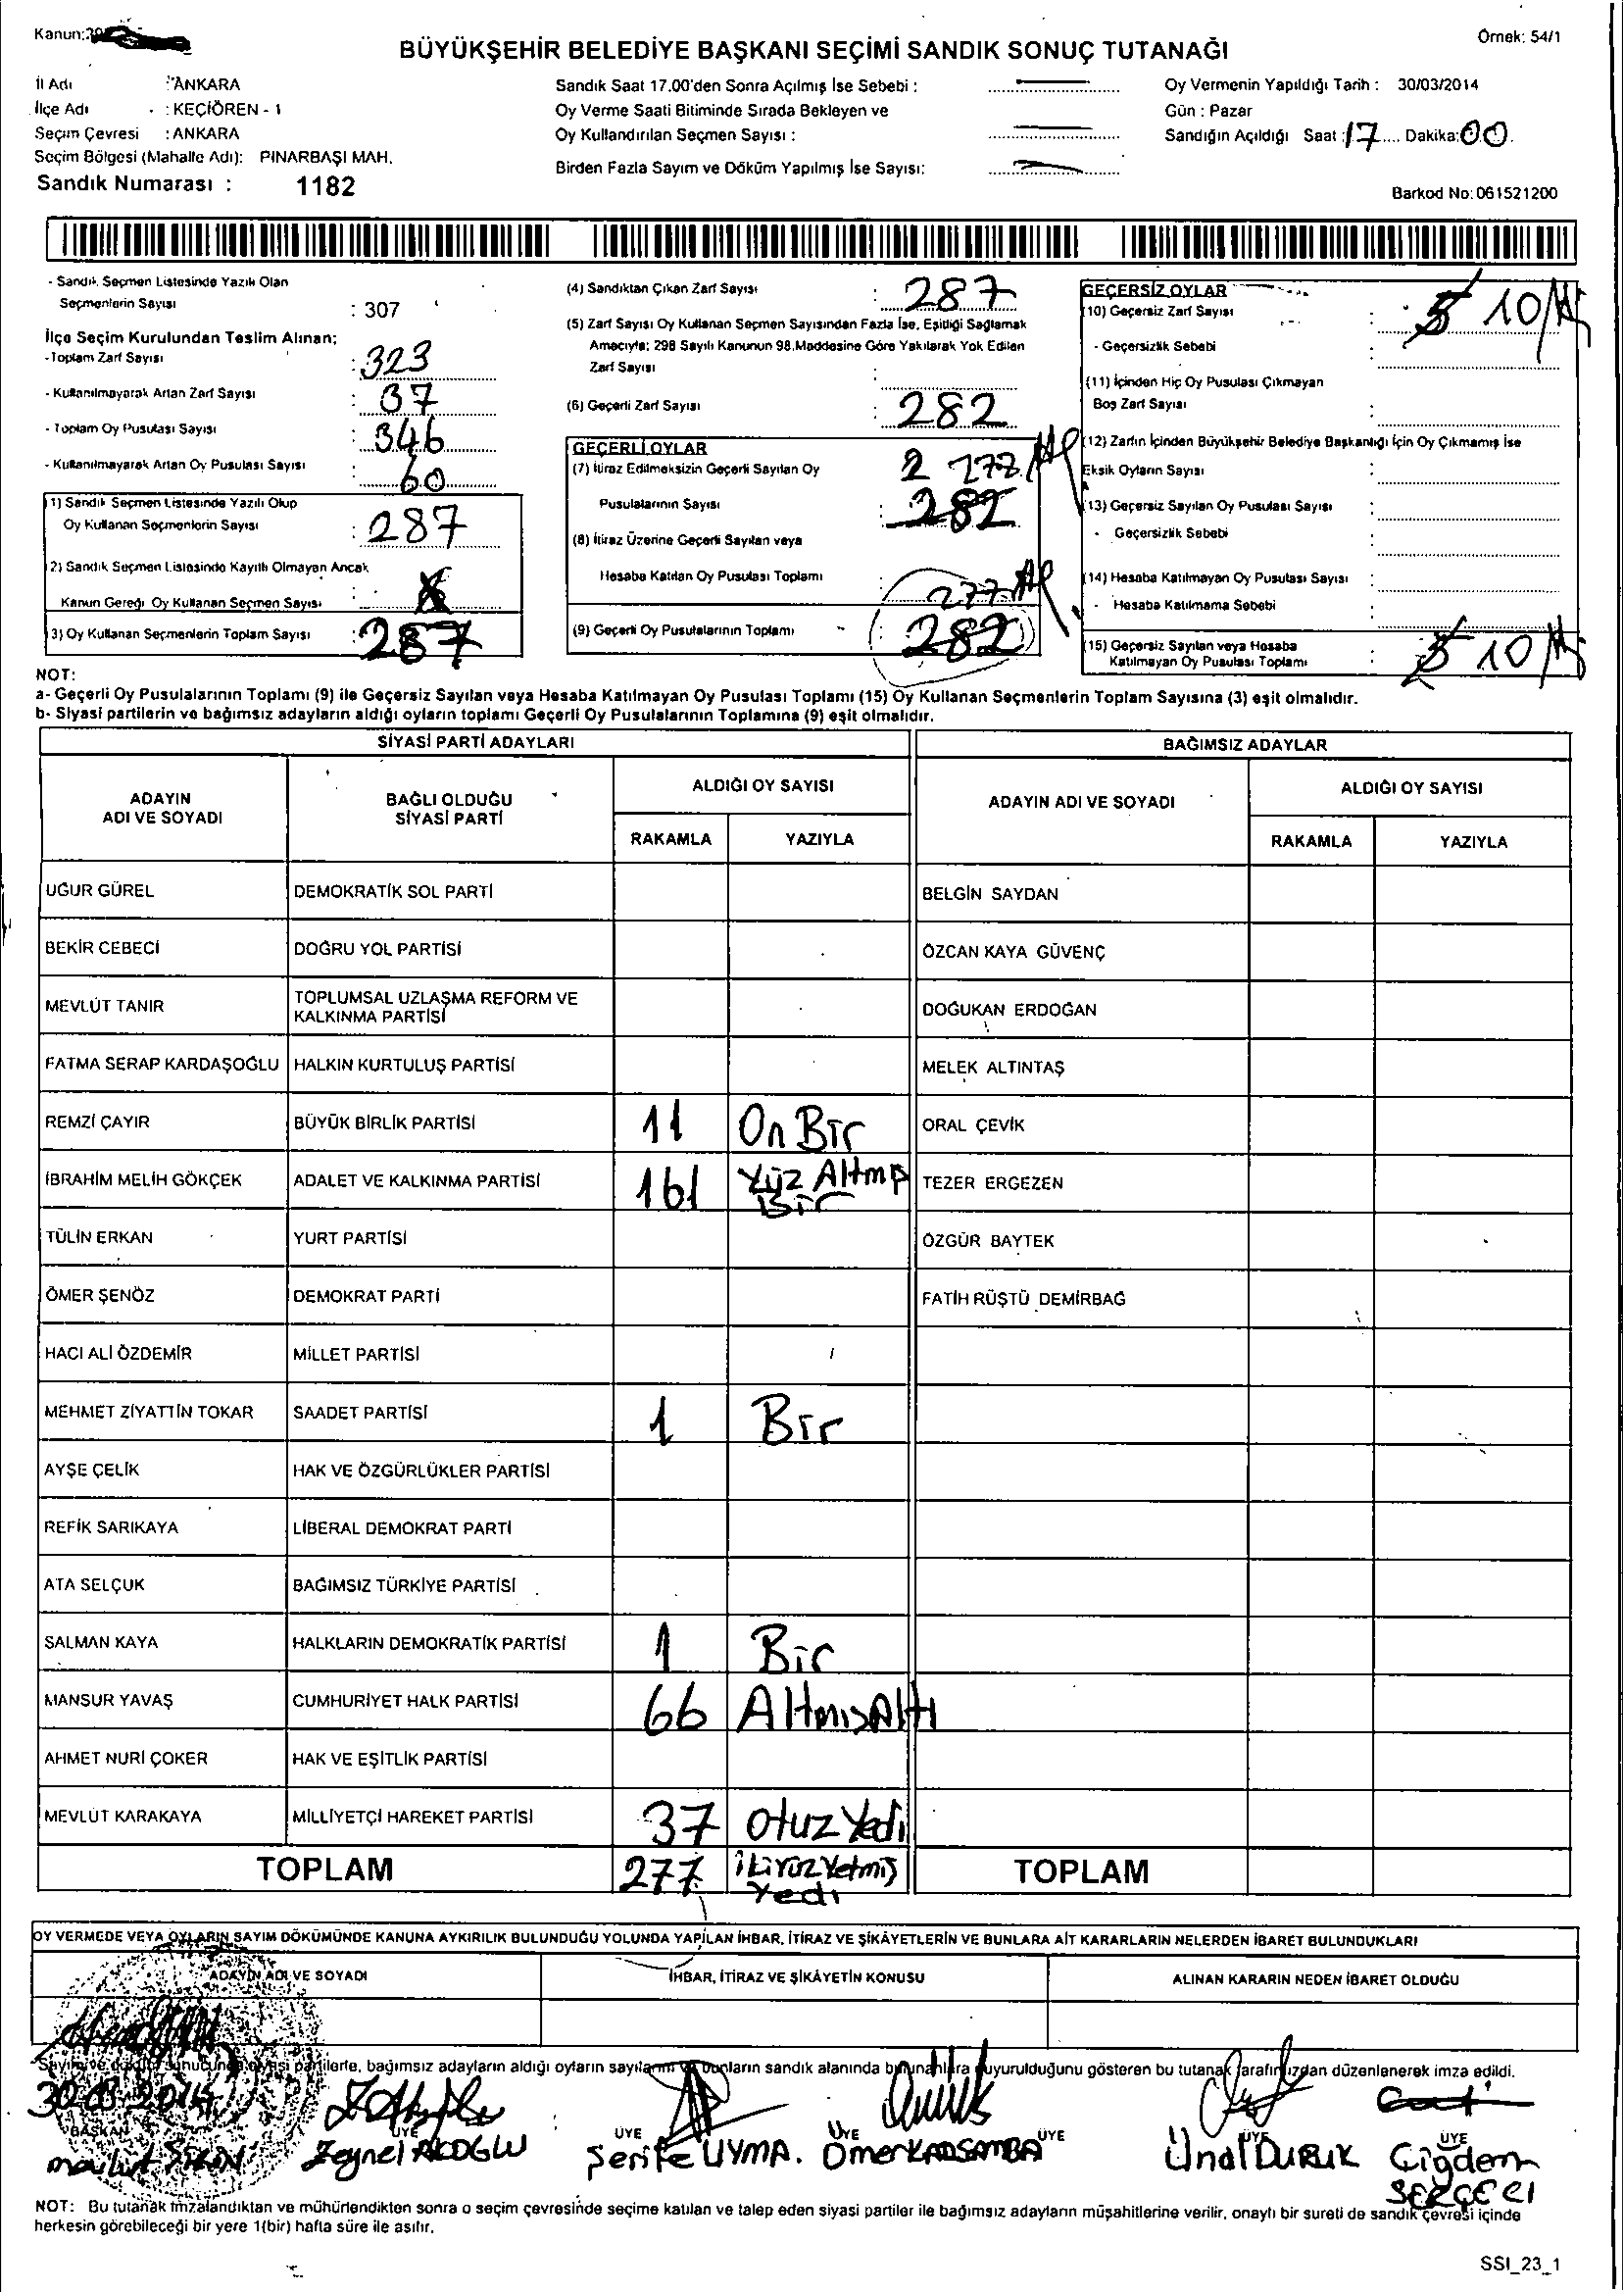 Kanun:
Örnek: 54/1
BÜYÜKŞEHİR BELEDİYE BAŞKANI SEÇİMİ SANDIK SONUÇ TUTANAĞI
İl Adı : ANKARA
İlçe Adı : KEÇİÖREN - 1
Seçim Çevresi : ANKARA
Seçim Bölgesi (Mahalle Adı): PINARBAŞI MAH.
Sandık Numarası : 1182
Sandık Saat 17.00'den Sonra Açılmış İse Sebebi :
Oy Verme Saati Bitiminde Sırada Bekleyen ve
Oy Kullandırılan Seçmen Sayısı :
Birden Fazla Sayım ve Döküm Yapılmış İse Sayısı:
Oy Vermenin Yapıldığı Tarih : 30/03/2014
Gün : Pazar
Sandığın Açıldığı Saat : 17 .... Dakika: 00.
Barkod No: 061521200
- Sandık Seçmen Listesinde Yazılı Olan
Seçmenlerin Sayısı : 307
İlçe Seçim Kurulundan Teslim Alınan;
- Toplam Zarf Sayısı : 323
- Kullanılmayarak Artan Zarf Sayısı : 37
- Toplam Oy Pusulası Sayısı : 346
- Kullanılmayarak Artan Oy Pusulası Sayısı : 60
1) Sandık Seçmen Listesinde Yazılı Olup
Oy Kullanan Seçmenlerin Sayısı : 287
2) Sandık Seçmen Listesinde Kayıtlı Olmayan Ancak
Kanun Gereği Oy Kullanan Seçmen Sayısı :
3) Oy Kullanan Seçmenlerin Toplam Sayısı : 287
(4) Sandıktan Çıkan Zarf Sayısı : 287
(5) Zarf Sayısı Oy Kullanan Seçmen Sayısından Fazla İse, Eşitliği Sağlamak
Amacıyla; 298 Sayılı Kanunun 98.Maddesine Göre Yakılarak Yok Edilen
Zarf Sayısı :
(6) Geçerli Zarf Sayısı : 282
GEÇERLİ OYLAR
(7) İtiraz Edilmeksizin Geçerli Sayılan Oy 2 277
Pusulalarının Sayısı : 282
(8) İtiraz Üzerine Geçerli Sayılan veya
Hesaba Katılan Oy Pusulası Toplamı : 277
(9) Geçerli Oy Pusulalarının Toplamı : 282
GEÇERSİZ OYLAR
(10) Geçersiz Zarf Sayısı : 5 10
- Geçersizlik Sebebi
(11) İçinden Hiç Oy Pusulası Çıkmayan
Boş Zarf Sayısı :
(12) Zarfın İçinden Büyükşehir Belediye Başkanlığı İçin Oy Çıkmamış İse
Eksik Oyların Sayısı :
13) Geçersiz Sayılan Oy Pusulası Sayısı :
- Geçersizlik Sebebi
(14) Hesaba Katılmayan Oy Pusulası Sayısı :
- Hesaba Katılmama Sebebi
(15) Geçersiz Sayılan veya Hesaba
Katılmayan Oy Pusulası Toplamı : 5 10
NOT:
a- Geçerli Oy Pusulalarının Toplamı (9) ile Geçersiz Sayılan veya Hesaba Katılmayan Oy Pusulası Toplamı (15) Oy Kullanan Seçmenlerin Toplam Sayısına (3) eşit olmalıdır.
b- Siyasi partilerin ve bağımsız adayların aldığı oyların toplamı Geçerli Oy Pusulalarının Toplamına (9) eşit olmalıdır.
SİYASİ PARTİ ADAYLARI BAĞIMSIZ ADAYLAR
ADAYIN ADI VE SOYADI BAĞLI OLDUĞU SİYASİ PARTİ ALDIĞI OY SAYISI ADAYIN ADI VE SOYADI ALDIĞI OY SAYISI
RAKAMLA YAZIYLA RAKAMLA YAZIYLA
UĞUR GÜREL DEMOKRATİK SOL PARTİ BELGİN SAYDAN
BEKİR CEBECİ DOĞRU YOL PARTİSİ ÖZCAN KAYA GÜVENÇ
MEVLÜT TANIR TOPLUMSAL UZLAŞMA REFORM VE KALKINMA PARTİSİ DOĞUKAN ERDOĞAN
FATMA SERAP KARDAŞOĞLU HALKIN KURTULUŞ PARTİSİ MELEK ALTINTAŞ
REMZİ ÇAYIR BÜYÜK BİRLİK PARTİSİ 11 On Bir ORAL ÇEVİK
İBRAHİM MELİH GÖKÇEK ADALET VE KALKINMA PARTİSİ 161 Yüz Altmış Bir TEZER ERGEZEN
TÜLİN ERKAN YURT PARTİSİ ÖZGÜR BAYTEK
ÖMER ŞENÖZ DEMOKRAT PARTİ FATİH RÜŞTÜ DEMİRBAĞ
HACI ALİ ÖZDEMİR MİLLET PARTİSİ
MEHMET ZİYATTİN TOKAR SAADET PARTİSİ 1 Bir
AYŞE ÇELİK HAK VE ÖZGÜRLÜKLER PARTİSİ
REFİK SARIKAYA LİBERAL DEMOKRAT PARTİ
ATA SELÇUK BAĞIMSIZ TÜRKİYE PARTİSİ
SALMAN KAYA HALKLARIN DEMOKRATİK PARTİSİ 1 Bir
MANSUR YAVAŞ CUMHURİYET HALK PARTİSİ 66 Altmış Altı
AHMET NURİ ÇOKER HAK VE EŞİTLİK PARTİSİ
MEVLÜT KARAKAYA MİLLİYETÇİ HAREKET PARTİSİ 37 Otuz Yedi
TOPLAM 277 İkiYüzYetmiş Yedi TOPLAM
OY VERMEDE VEYA OYLARIN SAYIM DÖKÜMÜNDE KANUNA AYKIRILIK BULUNDUĞU YOLUNDA YAPILAN İHBAR, İTİRAZ VE ŞİKÂYETLERİN VE BUNLARA AİT KARARLARIN NELERDEN İBARET BULUNDUKLARI
ADAYIN ADI VE SOYADI İHBAR, İTİRAZ VE ŞİKÂYETİN KONUSU ALINAN KARARIN NEDEN İBARET OLDUĞU
Sayım ve döküm sonucunda siyasi partilerle, bağımsız adayların aldığı oyların sayılarını ve bunların sandık alanında bulunanlara duyurulduğunu gösteren bu tutanak tarafımızdan düzenlenerek imza edildi.
30.03.2014
BAŞKAN ÜYE ÜYE ÜYE ÜYE ÜYE ÜYE
Zeynel AKOĞLU Şerife UYMA. Ömer KARSAMBA Ünal DURUK Çiğdem SERÇECİ
NOT: Bu tutanak imzalandıktan ve mühürlendikten sonra o seçim çevresinde seçime katılan ve talep eden siyasi partiler ile bağımsız adayların müşahitlerine verilir, onaylı bir sureti de sandık çevresi içinde
herkesin görebileceği bir yere 1(bir) hafta süre ile asılır.
SSI_23_1